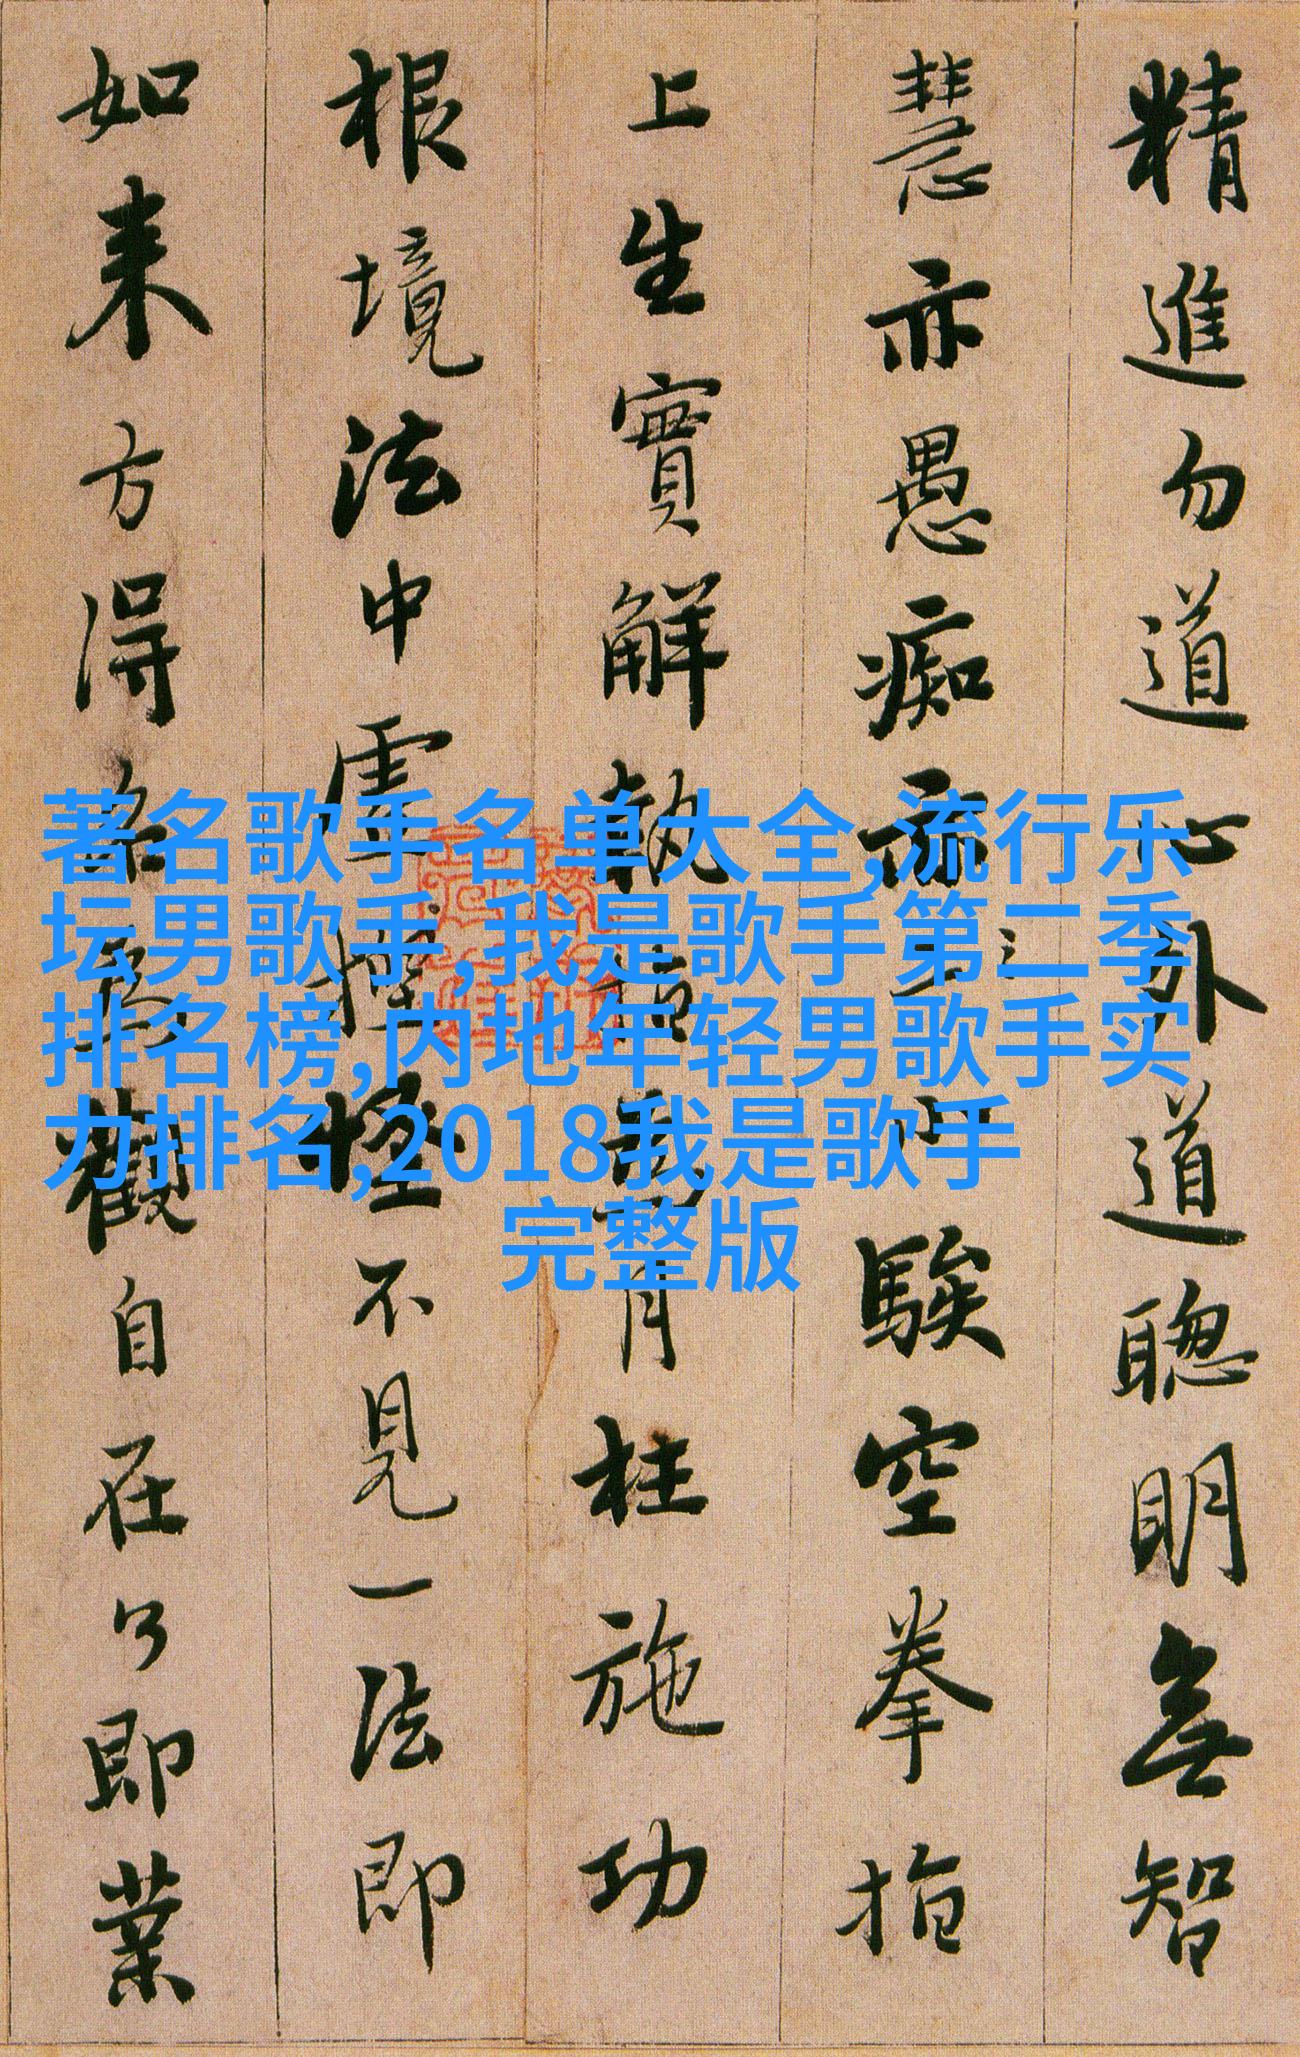 精進勿道心外道聰明無智
慧亦愚痴亦小騃空拳指
上生實解執指為月枉施功
根境法中虛捏怪不見一法即
如来方得名為觀自在了即業
著名歌手名单大全,流行乐
坛男歌手,我是歌手第二季
排名榜,内地年轻男歌手实
力排名,2018我是歌手
完整版